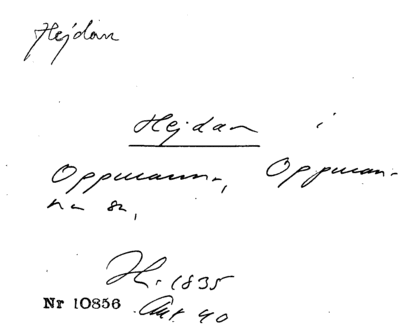 Hejdan
Hejdan i
Oppmanna, Oppman-
na sn,
H. 1835
Nr 10856 Ant 40